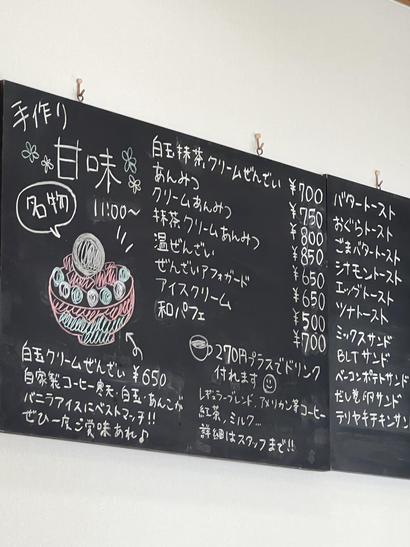 手作り
甘味
名物
11:00〜
白玉クリームぜんざい ¥650
自家製コーヒー寒天・白玉・あんこが
バニラアイスにベストマッチ!!
ぜひ一度ご賞味あれ♪
白玉抹茶クリームぜんざい ¥700
あんみつ ¥750
クリームあんみつ ¥800
抹茶クリームあんみつ ¥850
温ぜんざい ¥650
ぜんざいアフォガード ¥650
アイスクリーム ¥500
和パフェ ¥700
270円プラスでドリンク
付れます
レギュラーブレンド、アメリカン等コーヒー
紅茶、ミルク...
詳細はスタッフまで!!
バタートースト
おぐらトースト
ごまバタートースト
シナモントースト
エッグトースト
ツナトースト
ミックスサンド
BLTサンド
ベーコンポテトサンド
だし巻卵サンド
テリヤキチキンサン